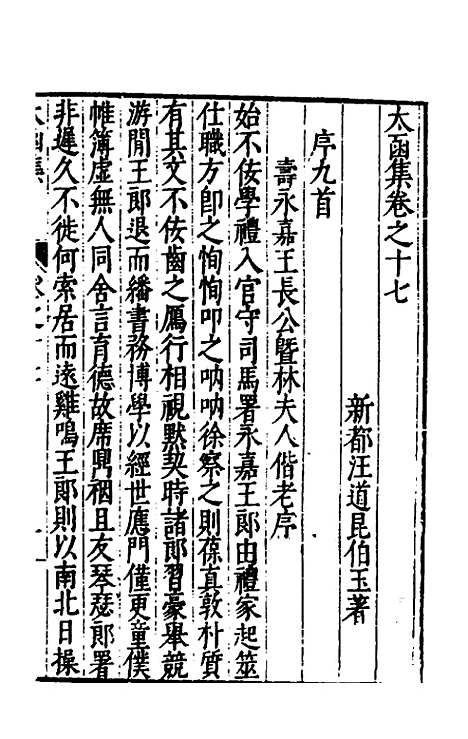 太函集卷之十七
新都汪道昆伯玉著
序九首
壽永嘉王長公暨林夫人偕老序
始不佞學禮入官守司馬署永嘉王郎由禮家起筮
仕職方卽之恂恂叩之呐呐徐察之則葆真敦朴質
有其文不佞齒之厲行相視默契時諸郎習豪舉競
游閒王郎退而繙書務博學以經世應門僅更童僕
帷簿虛無人同舍言育德故席鴈裀且友琴瑟郎署
非遲久不徙何索居而遠雞鳴王郎則以南北日操